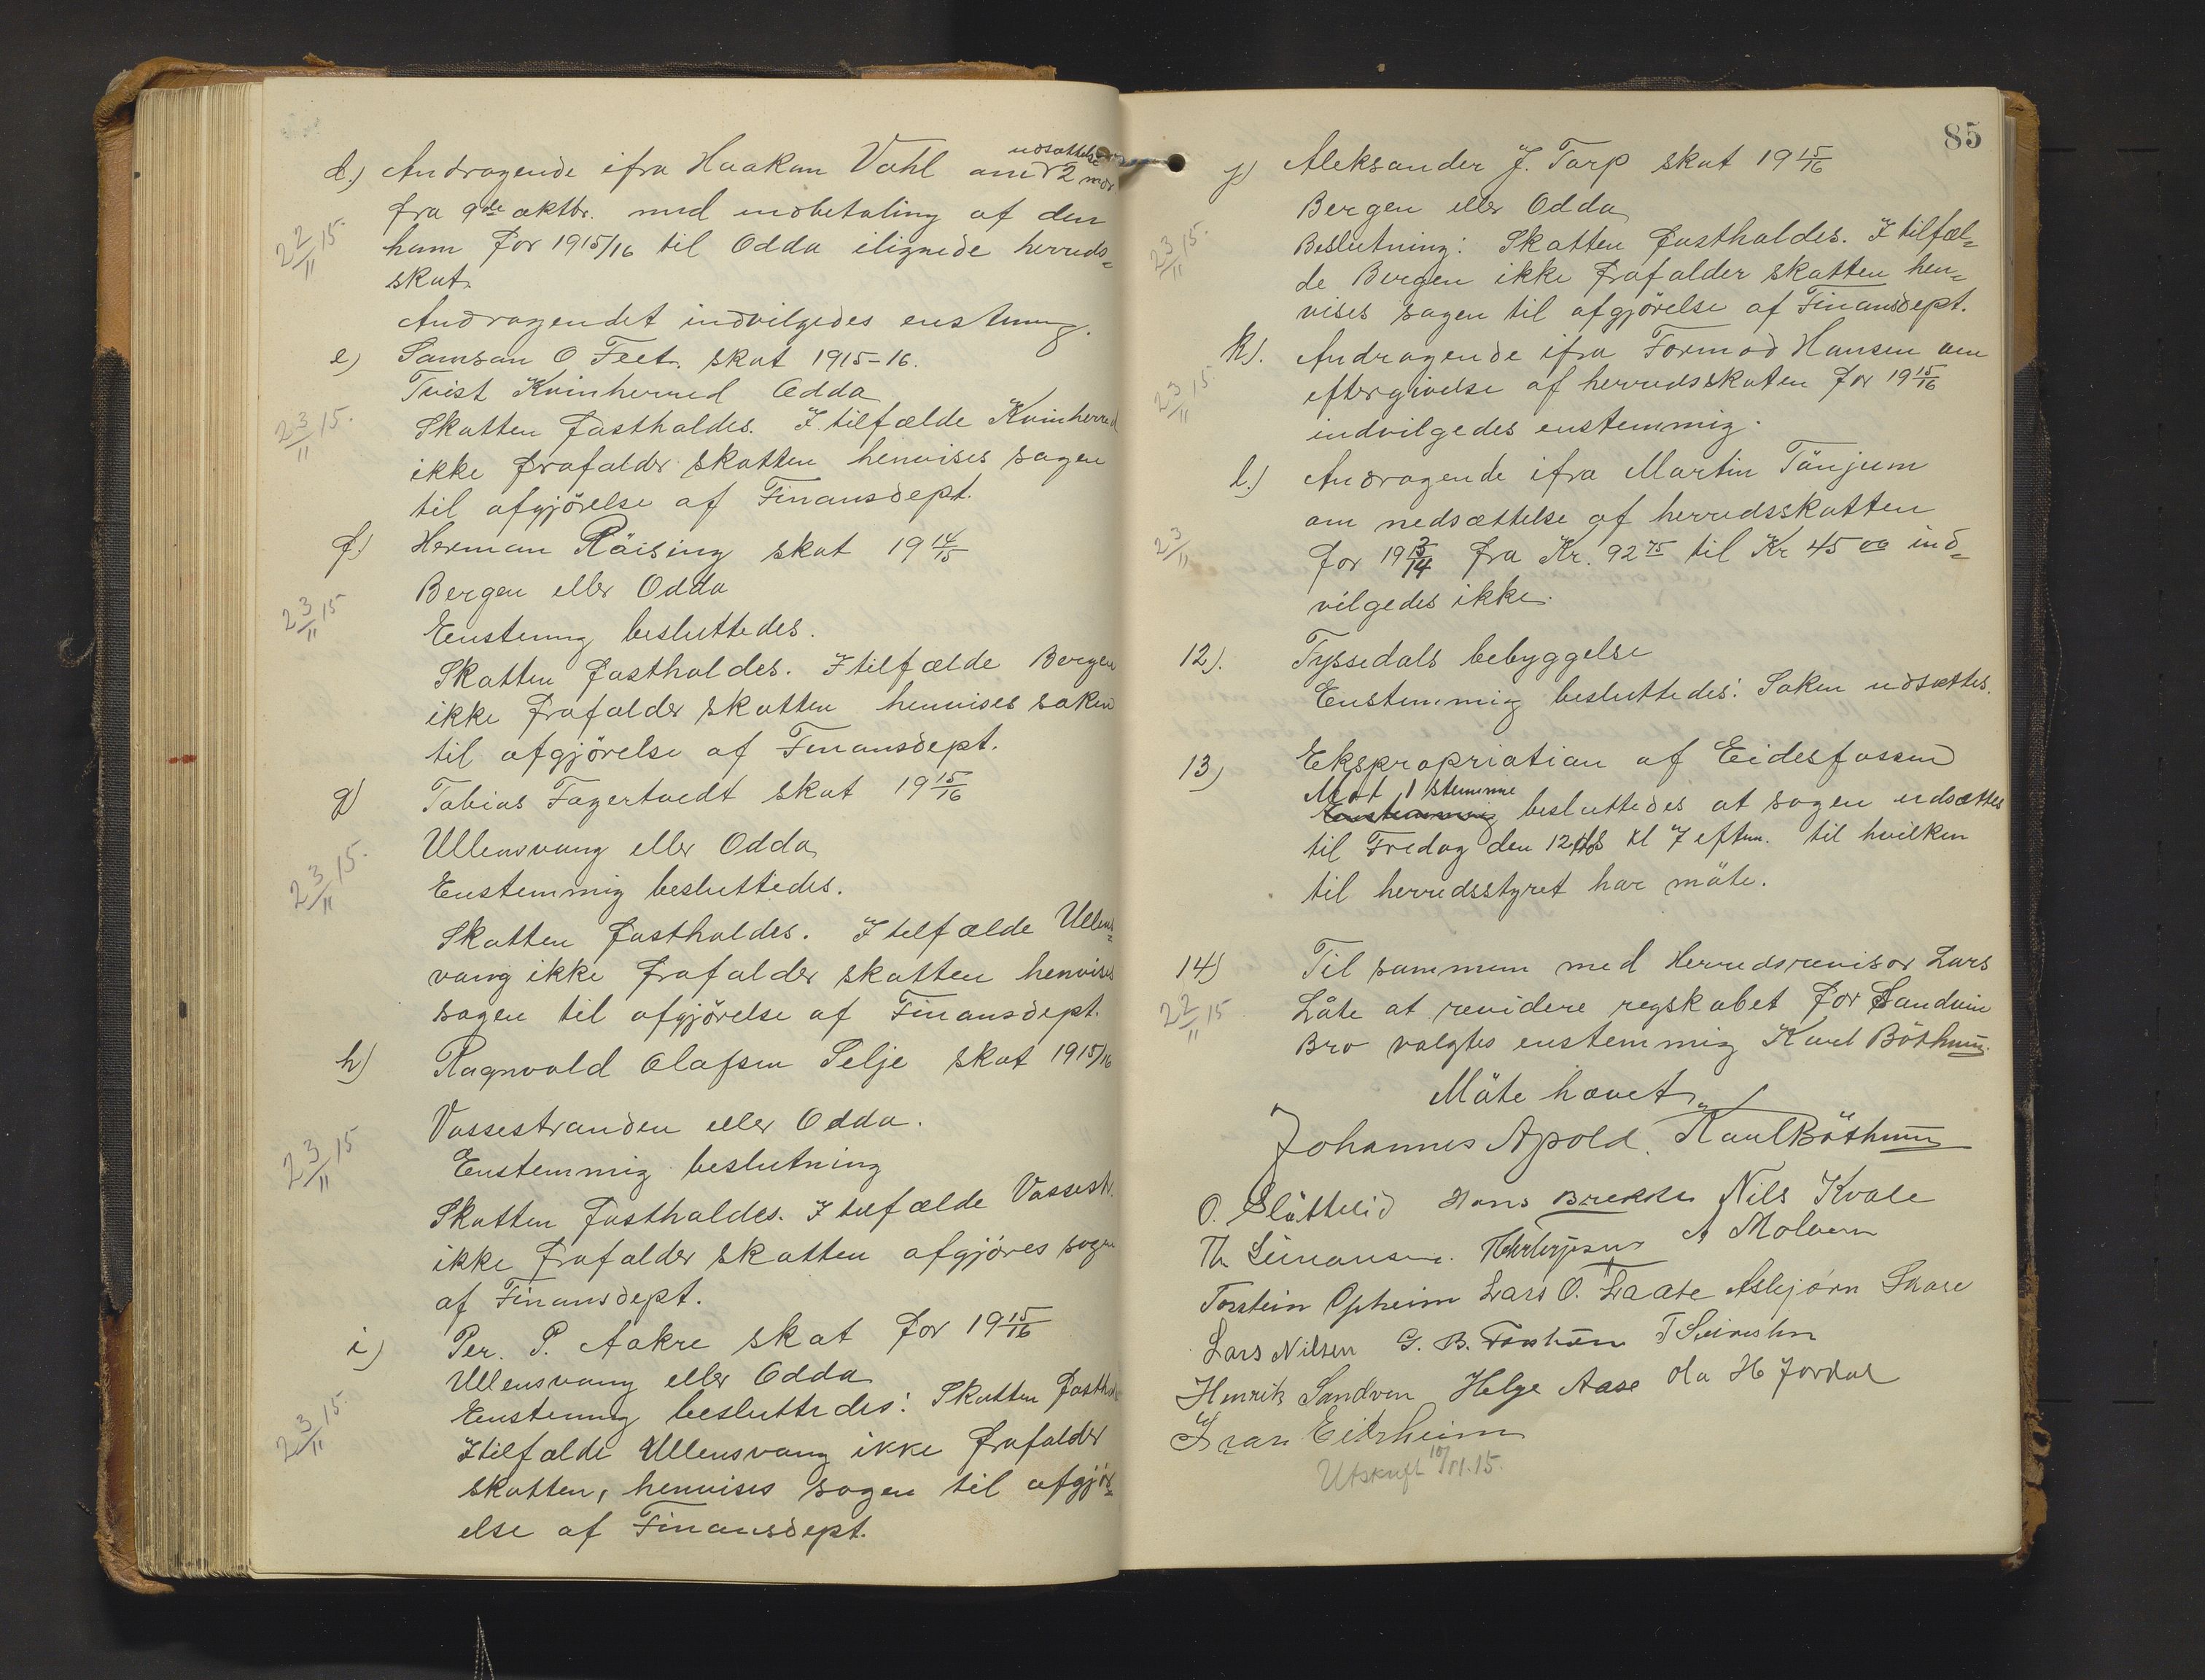 d.) Andragende ifra Haakon Vahl om udsættelse 2 mdr
fra 9de oktbr. med indbetaling af den
22/11 15.
ham for 1915/16 til Odda ilignede herreds-
skat.
Andragendet indvilgedes enstemmig.
e) Samson O Feet skat 1915-16.
Tvist Kvinherred Odda
23/11 15.
Skatten fastholdes. I tilfælde Kvinherred
ikke frafalder skatten henvises sagen
til afgjörelse af Finansdept.
f.) Herman Räising skat 19 14/15
Bergen eller Odda
23/11 15
Enstemig besluttedes.
Skatten fastholdes. I tilfælde Bergen
ikke frafalder skatten henvises saken
til afgjörelse af Finansdept.
g) Tobias Fagertvedt skat 19 15/16
Ullensvang eller Odda
23/11 15.
Enstemmig besluttedes.
Skatten fastholdes. I telfælde Ullens-
vang ikke frafalder skatten henvises
sagen til afgjörelse af Finansdept.
h) Ragnvald Olafsen Selje skat 1915/16
Vossestranden eller Odda.
23/11 15
Enstemmig beslutning
Skatten fastholdes. I telfælde Vossestr.
ikke frafalder skatten afgjöres sagen
af Finansdept.
i) Per. P. Aakre skat for 19 15/16
Ullensvang eller Odda
23/11 15.
Enstemig besluttedes: Skatten fasth
I tilfælde Ullensvang ikke frafalder
skatten, henvises sagen til afgjör-
else af Finansdept.
85
j) Aleksander J. Tarp skat 19 15/16
Bergen eller Odda
23/11 15.
Beslutning: Skatten fastholdes. I tilfæl-
de Bergen ikke frafalder skatten hen-
vises sagen til afgjörelse af Finansdept.
k). Andragende ifra Formod Hansen om
23/11 15
eftergivelse af herredsskaten for 19 15/16
indvilgedes enstemmig.
l.) Andragende ifra Martin Tänjum
om nedsættelse af herredsskatten
23/11
for 19 13/14 fra Kr. 92 75 til Kr 45 00 ind-
vilgedes ikke.
12). Tyssedals bebyggelse
Enstemmig besluttedes: Saken udsættes.
13) Ekspropriation af Eidesfossen
Mot 1 stemme
Enstemmig besluttedes at sagen udsættes
til Fredag den 12 ds kl 7 eftm. til hvilken
til herredsstyret har möte.
14) Til sammen med Herredsrevisor Lars
22/11 15
Låte at revidere regskabet for Sandvin
Bro valgtes enstemmig Karl Böthun.
Möte hævet
Johannes Apold. Karl Böthun
O. Slåttelid Hans Brekke Nils Kvale
Th Simonsen. A Molven
Torstein Opheim Lars O. Laate Asbjørn Skare
Lars Nilsen G. B.
Henrik Sandven Helge Aase Ola H Jordal
Ivar Eitrheim
Utskrift 10/11.15.